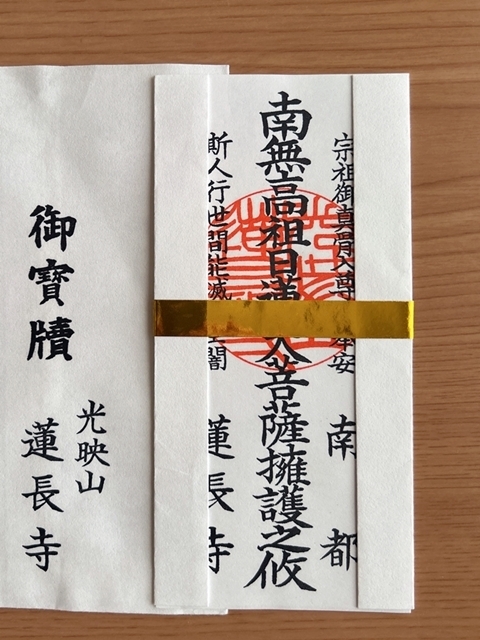 宗祖御真骨入尊 奉安
南都
南無高祖日蓮大菩薩擁護之攸
斯人行世間能滅 生闇
蓮長寺
御寶牘
光映山
蓮長寺